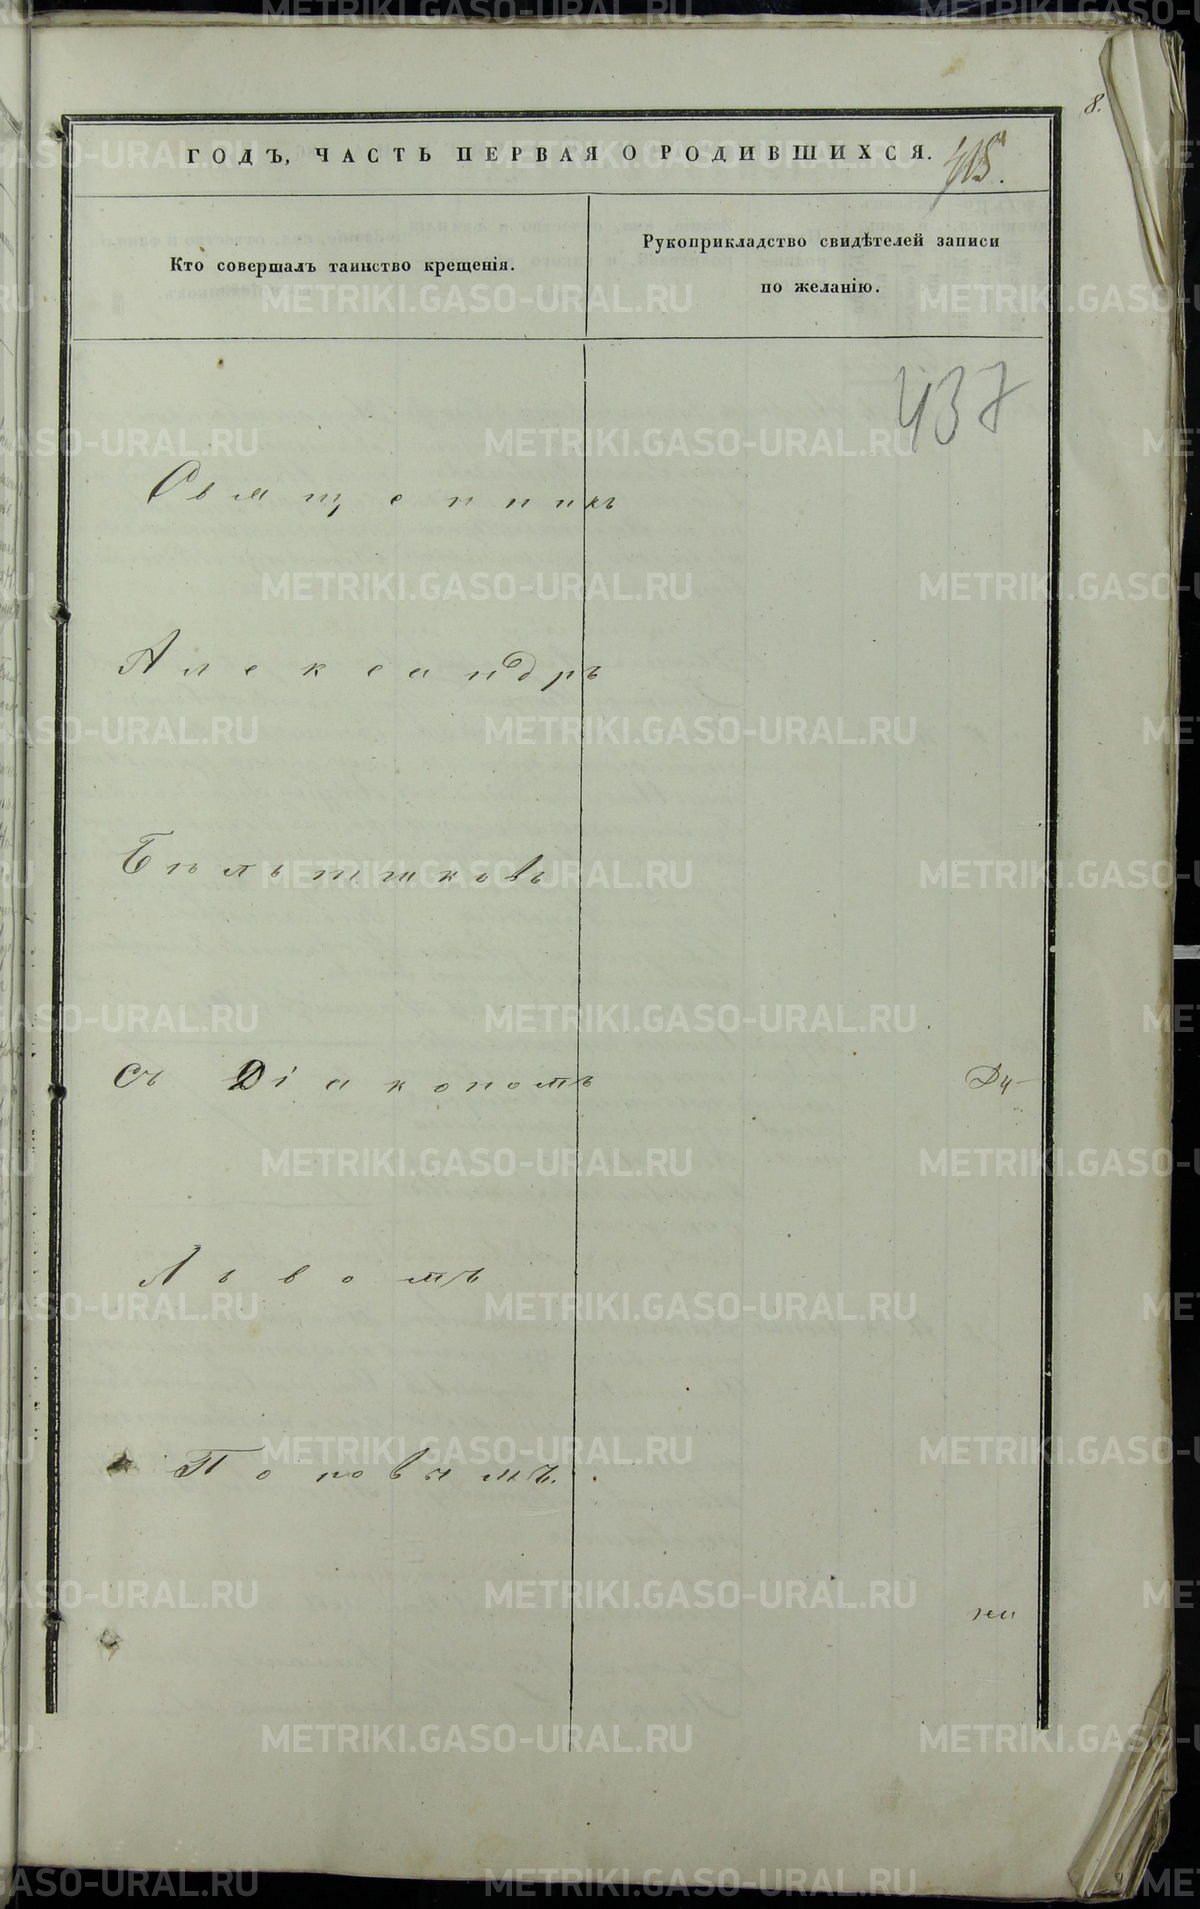 8.
ГОДЪ, ЧАСТЬ ПЕРВАЯ О РОДИВШИХСЯ.
415.
Кто совершалъ таинство крещенія.
Рукоприкладство свидѣтелей записи
по желанію.
437
Священникъ
Александръ
Бѣльтюковъ
съ Діакономъ
Ду-
Львомъ
Поповымъ.
METRIKI.GASO-URAL.RU